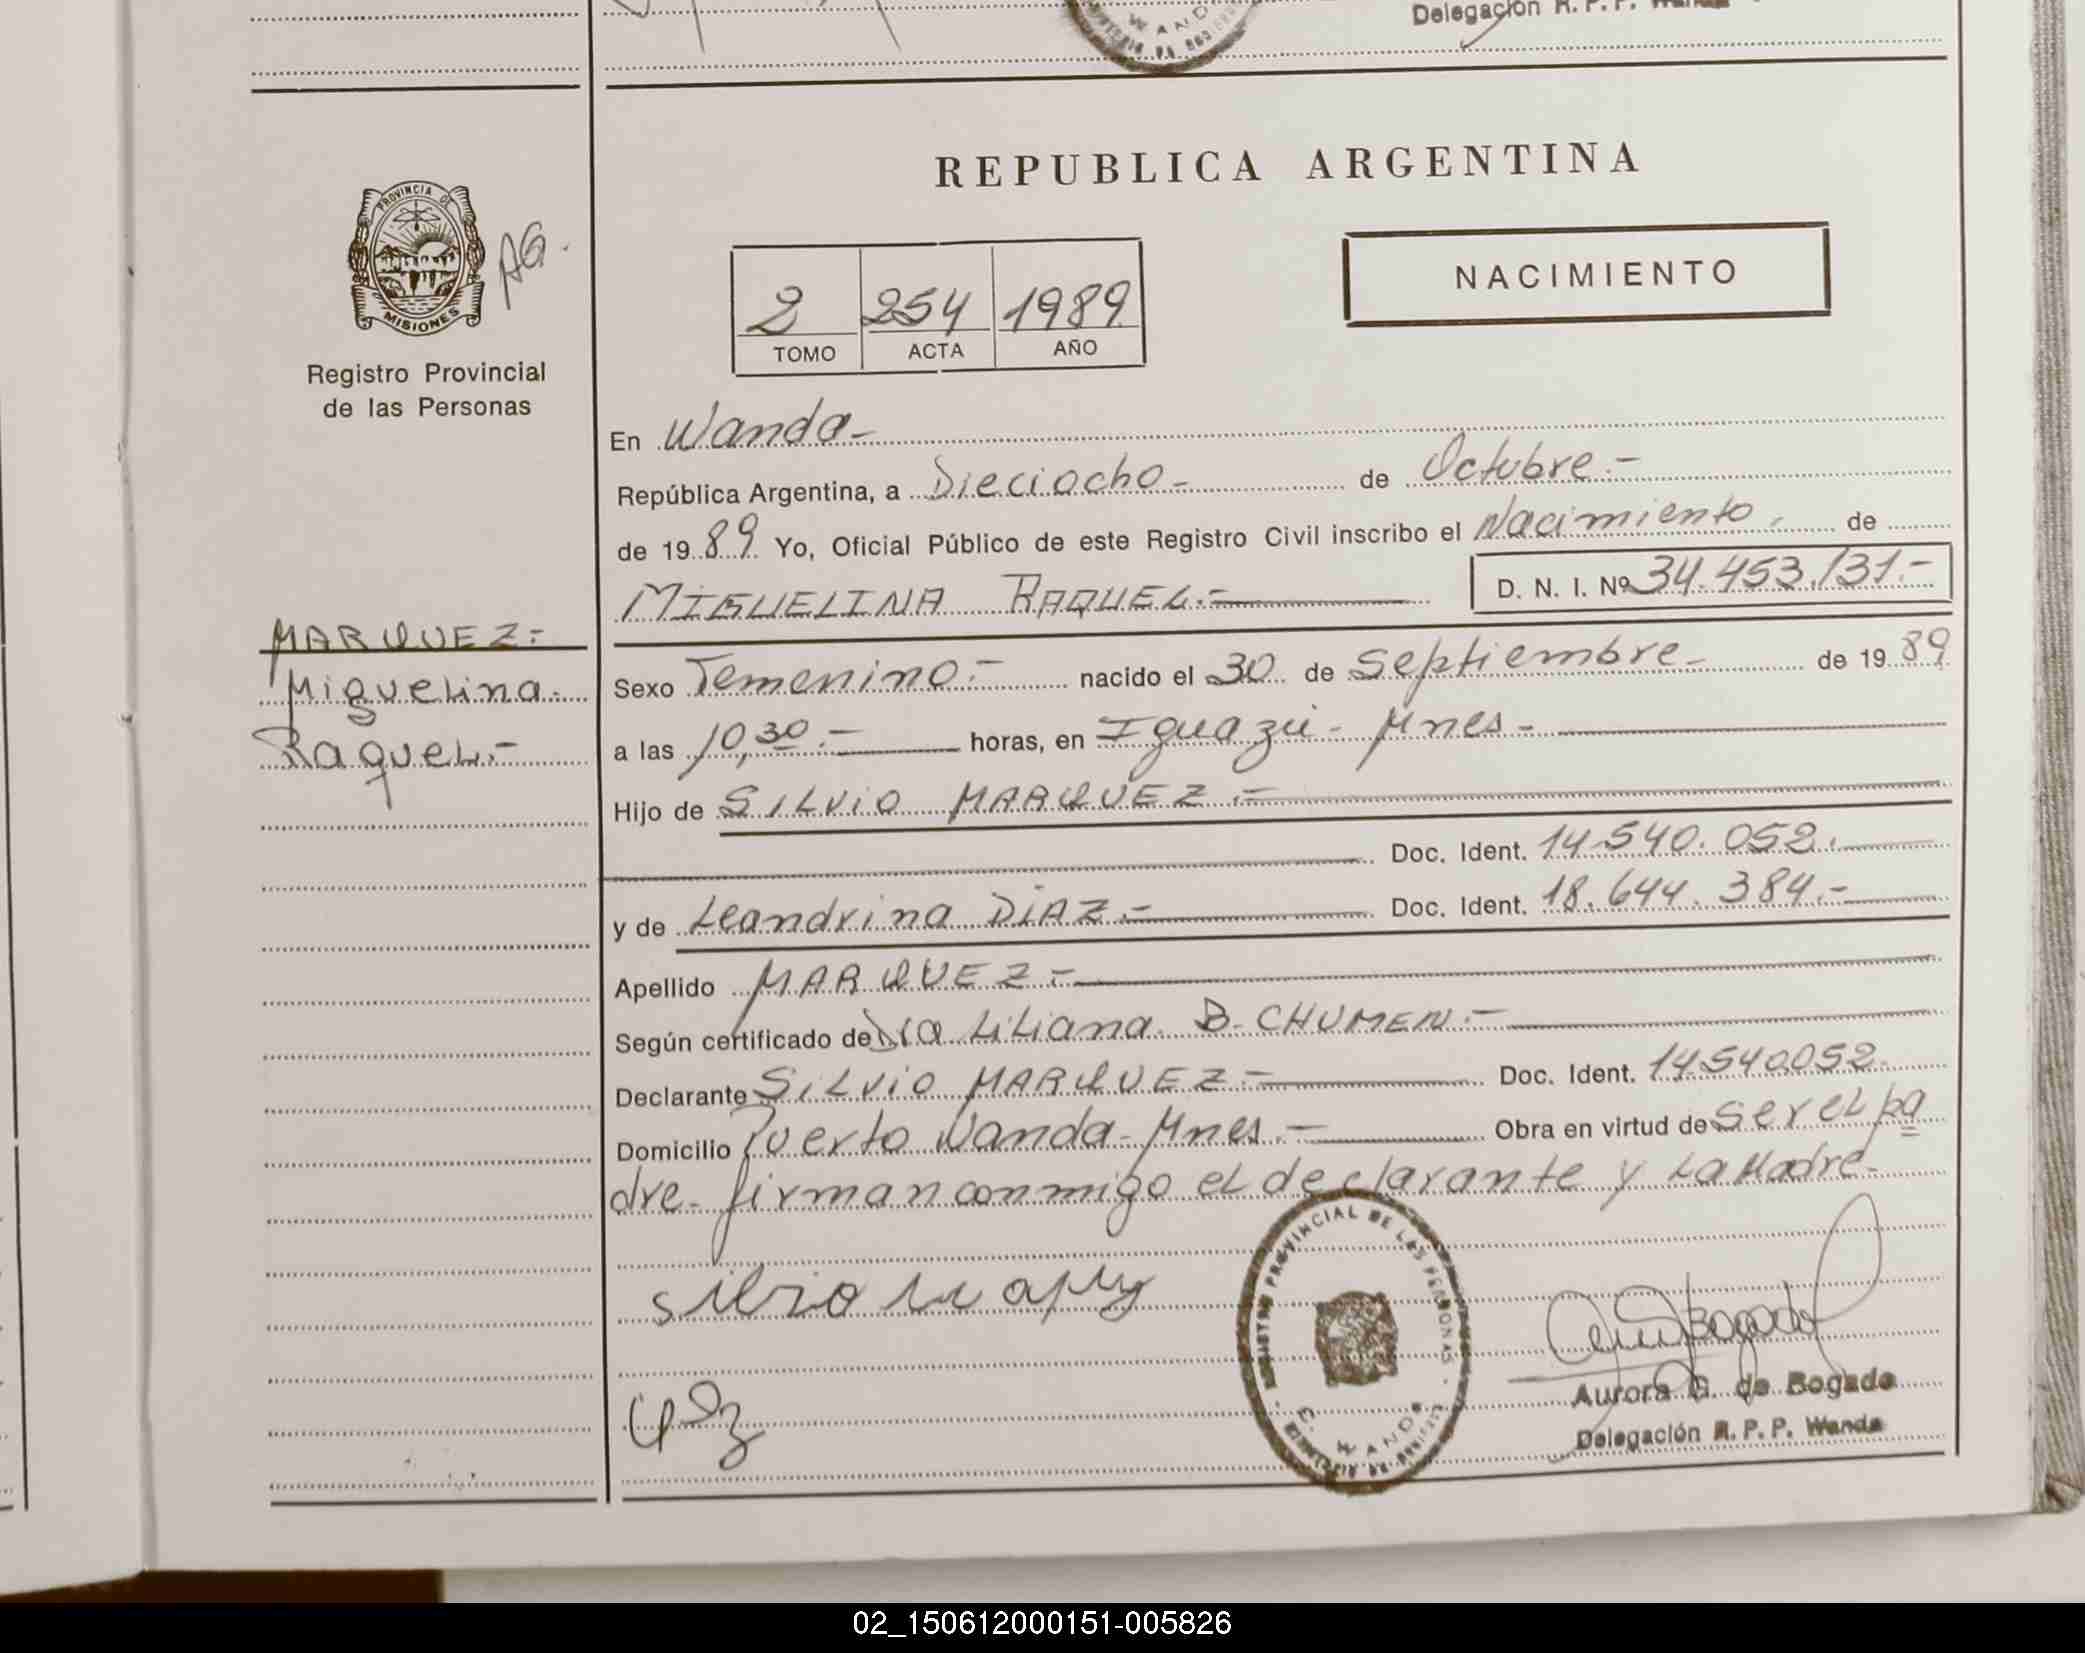 Delegación R. P. P. Wanda
WANDA
REPUBLICA ARGENTINA
PROVINCIA DE
MISIONES
AG.
NACIMIENTO
2 254 1989
TOMO ACTA AÑO
Registro Provincial
de las Personas
En Wanda-
República Argentina, a Dieciocho- de Octubre.-
de 1989 Yo, Oficial Público de este Registro Civil inscribo el Nacimiento. de
MIGUELINA RAQUEL.- D. N. I. Nº 34.453.131.-
MARQUEZ.-
Miguelina.
Raquel.-
Sexo Femenino.- nacido el 30 de Septiembre- de 1989
a las 10,30.- horas, en Iguazú - Mnes-
Hijo de SILVIO MARQUEZ.-
Doc. Ident. 14.540.052.
y de Leandrina DIAZ.- Doc. Ident. 18.644.384.-
Apellido MARQUEZ.-
Según certificado de Dra Liliana B. CHUMEN.-
Declarante SILVIO MARQUEZ- Doc. Ident. 14.540.052.
Domicilio Puerto Wanda - Mnes.- Obra en virtud de ser el pa
dre- firman conmigo el declarante y la Madre-
REGISTRO PROVINCIAL DE LAS PERSONAS
WANDA
Aurora G. de Bogado
Delegación R. P. P. Wanda
02_150612000151-005826